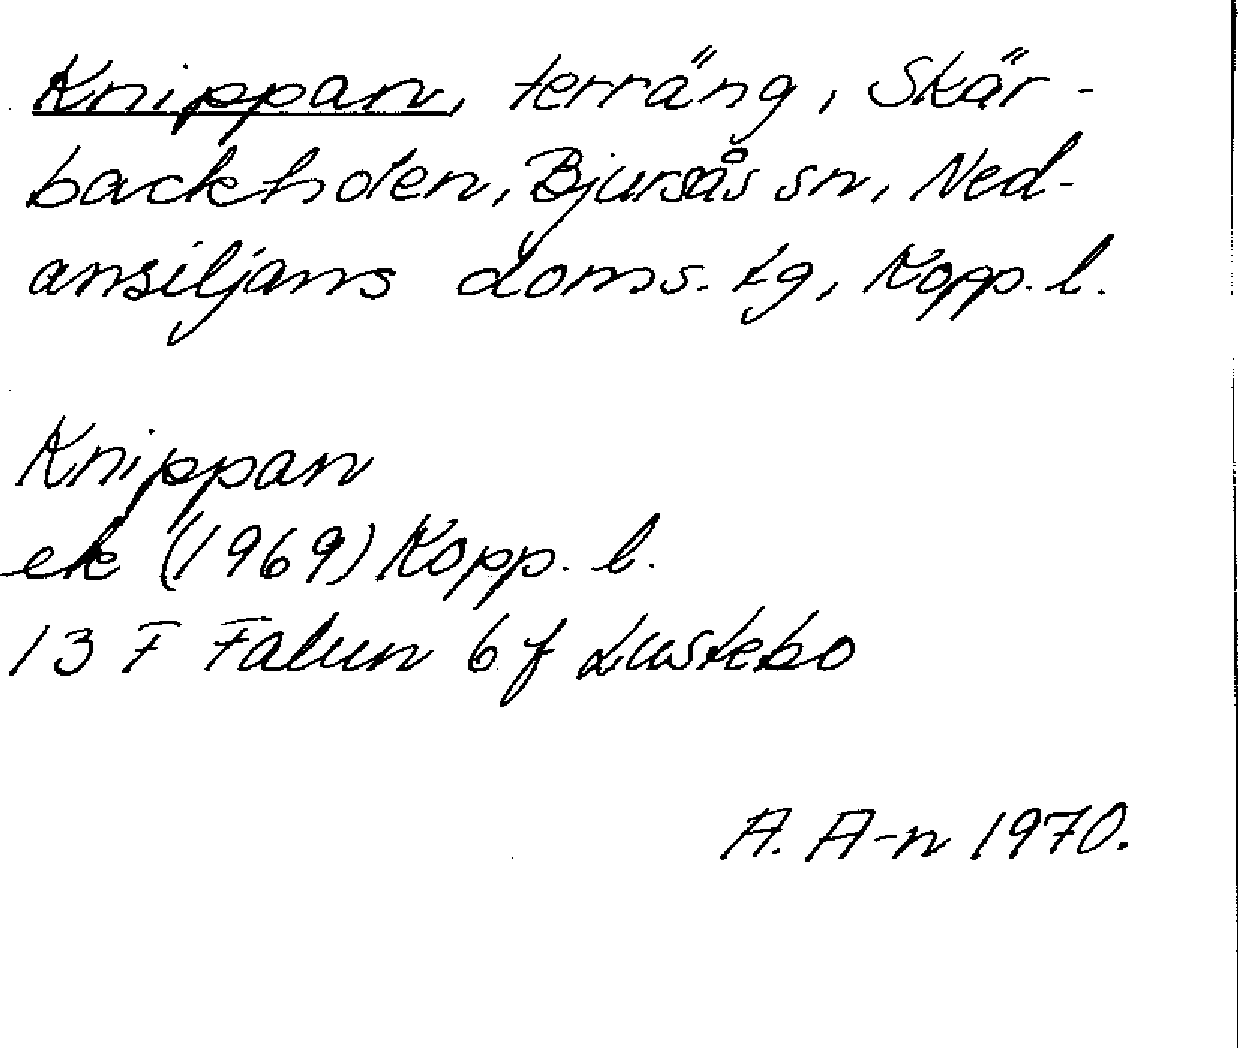 Knippan, terräng, Skär-
backholen, Bjursås sn, Ned-
ansiljans doms. tg, Kopp. l.
Knippan
ek (1969) Kopp. l.
13 F Falun 6 f Lustebo
A. A-n 1970.